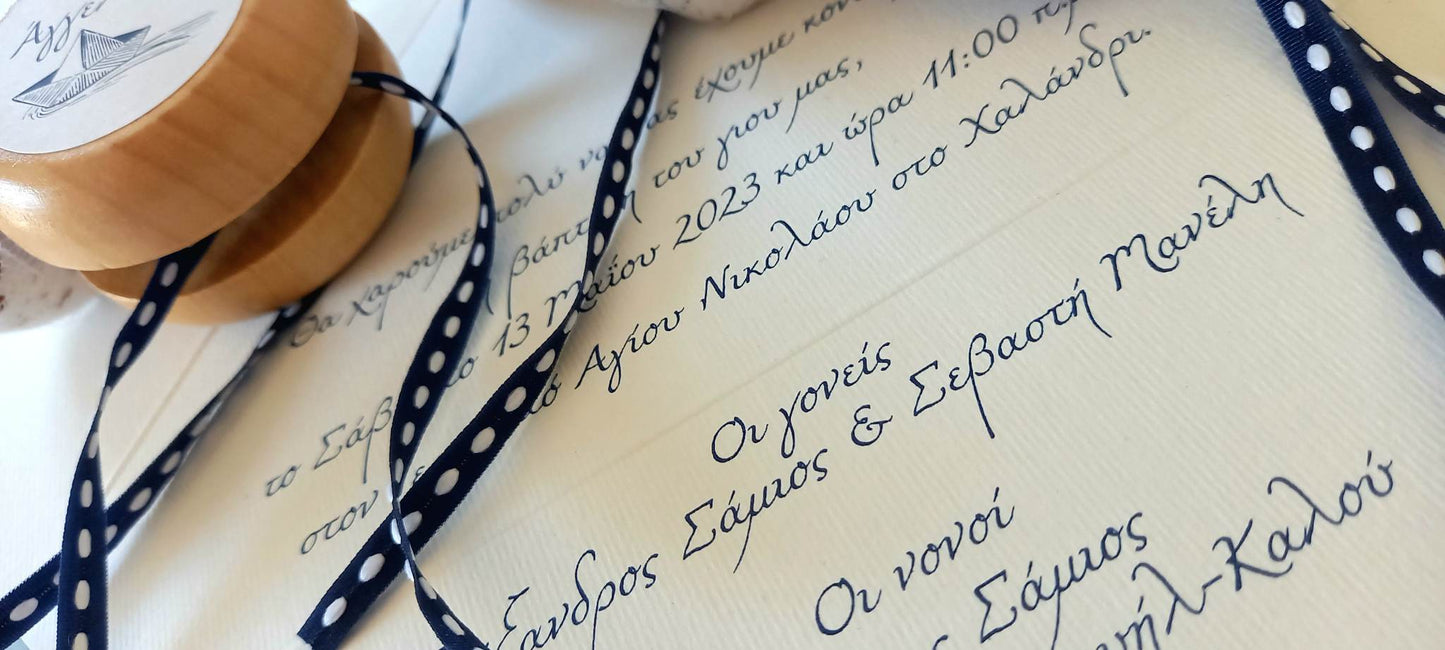 Άγγε
Θα χαρούμε πολύ να σας έχουμε κον
βάπτι η του γιου μας,
το Σάβ το 13 Μαΐου 2023 και ώρα 11:00 π.μ
στον ε ός Αγίου Νικολάου στο Χαλάνδρι.
Οι γονείς
ξανδρος Σάμιος & Σεβαστή Μανέλη
Οι νονοί
ς Σάμιος
ήλ-Καλού